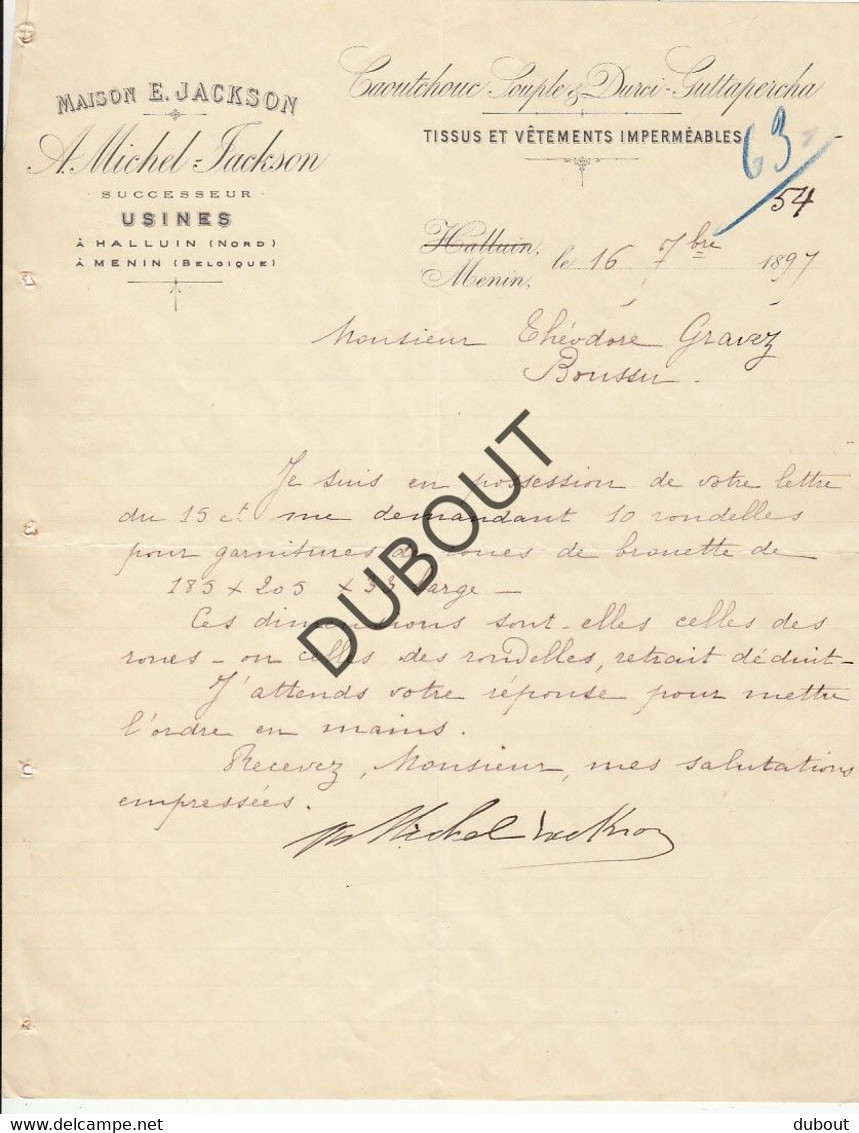 MAISON E. JACKSON
A. Michel-Jackson
SUCCESSEUR
USINES
À HALLUIN (NORD)
À MENIN (BELGIQUE)
Caoutchouc Souple & Durci-Guttapercha
TISSUS ET VÊTEMENTS IMPERMÉABLES
63
54
Halluin,
Menin, le 16 7bre 1897
Monsieur Théodore Gravez
Boussu.
Je suis en possession de votre lettre
du 15 ct me demandant 10 rondelles
pour garnitures de roues de brouette de
185 x 205 x 33 large -
Ces dimensions sont-elles celles des
roues - ou celles des rondelles, retrait déduit -
J'attends votre réponse pour mettre
l'ordre en mains.
Recevez, Monsieur, mes salutations
empressées.
Michel Jackson
DUBOUT
delcampe.net
dubout